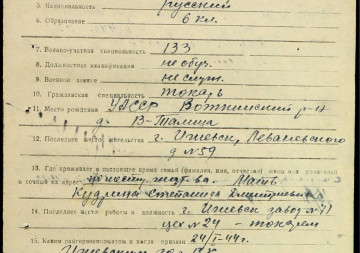 5. Национальность русский
6. Образование 6 кл.
7. Военно-учетная специальность 133
8. Должностная квалификация необуч.
9. Военное звание
10. Гражданская специальность токарь
11. Место рождения УАССР Воткинский р-н
д. В-Талица
12. Последнее место жительства г. Ижевск, Леваневского
д №59
13. Где проживает в настоящее время семья (фамилия, имя, отчество)
точный адрес Мать
Кудрина Степанида Дмитриевна
14. Последнее место работы и должность г. Ижевск завод №71
цех №24 - токарем
15. Каким райгорвоенкоматом и когда призван 24/I-44г.
Ижевским